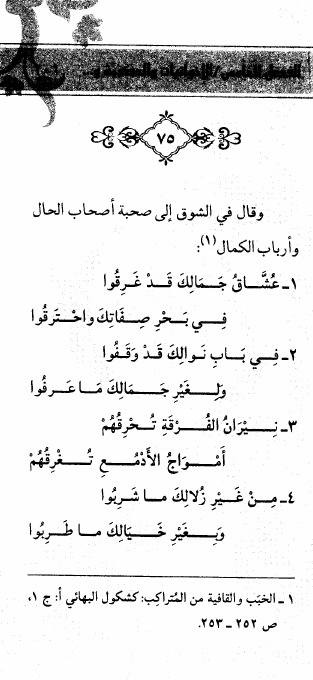 ٧٥
وقال في الشوق إلى صحبة أصحاب الحال
وأرباب الكمال(١):
١ـ عُشَّاقُ جَمَالِكَ قَدْ غَرِقُوا
فِي بَحْرِ صِفَاتِكَ واحْتَرقُوا
٢ـ فِي بَابِ نَوالِكَ قَدْ وَقَفُوا
وَلِغَيْرِ جَمَالِكَ مَا عَرفُوا
٣ـ نِيْرَانُ الفُرْقَةِ تُحْرِقُهُمْ
أَمْوَاجُ الأَدْمُعِ تُغْرِقُهُمْ
٤ـ مِنْ غَيْرِ زُلالِكَ ما شَرِبُوا
وَبِغَيْرِ خَيَالِكَ ما طَرِبُوا
١ ـ الخبَب والقافية من المُتراكِب: كشكول البهائي أ: ج ١،
ص ٢٥٢ ـ ٢٥٣.